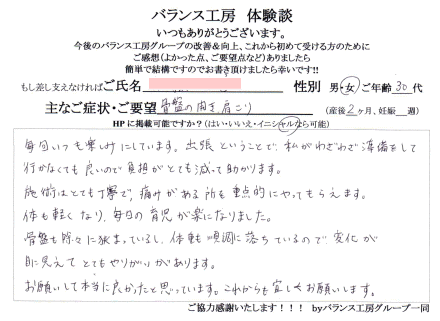 バランス工房 体験談
いつもありがとうございます。
今後のバランス工房グループの改善&向上、これから初めて受ける方のために
ご感想(よかった点、ご要望点など)ありましたら
簡単で結構ですのでお書き頂けましたら幸いです!!
もし差し支えなければご氏名 性別 男・女 ご年齢 30 代
主なご症状・ご要望 骨盤の開き、肩こり (産後 2 ヶ月、妊娠 週)
HPに掲載可能ですか?(はい・いいえ・イニシャルなら可能)
毎回いつも楽しみにしています。出張ということで、私がわざわざ準備をして
行かなくても良いので負担がとても減って助かります。
施術はとても丁寧で、痛みがある所を重点的にやってもらえます。
体も軽くなり、毎日の育児が楽になりました。
骨盤も除々に狭まっているし、体重も順調に落ちているので変化が
目に見えてとてもやりがいがあります。
お願いして本当に良かったと思っています。これからも宜しくお願いします。
ご協力感謝いたします!!! byバランス工房グループ一同